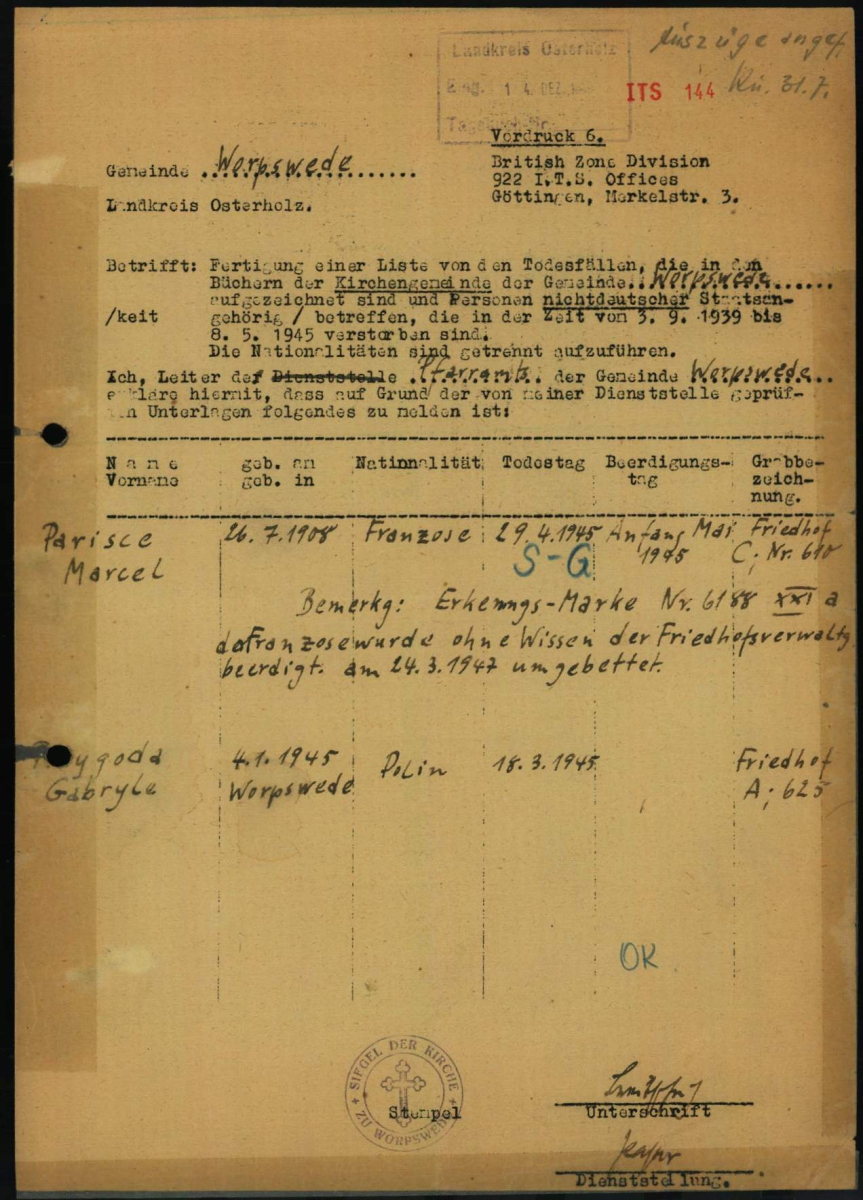 Auszüge angef.
Landkreis Osterholz
Eing. 14. DEZ.
ITS 144 Kü. 31.7.
Vordruck 6.
Gemeinde ..Worpswede......
British Zone Division
922 I.T.S. Offices
Landkreis Osterholz.
Göttingen, Merkelstr. 3.
Betrifft: Fertigung einer Liste von den Todesfällen, die in den
Büchern der Kirchengemeinde der Gemeinde..Worpswede......
aufgezeichnet sind und Personen nichtdeutscher Staatsan-
/keit gehörig / betreffen, die in der Zeit von 3. 9. 1939 bis
8. 5. 1945 verstorben sind.
Die Nationalitäten sind getrennt aufzuführen.
Ich, Leiter des Dienststelle .Pfarramts. der Gemeinde Worpswede..
erkläre hiermit, dass auf Grund der von meiner Dienststelle geprüf-
ten Unterlagen folgendes zu melden ist:
Name geb. an Nationalität Todestag Beerdigungs- Grabbe-
Vorname geb. in tag zeich-
nung.
Parisce 26. 7. 1908 Franzose 29. 4. 1945 Anfang Mai Friedhof
Marcel S-G 1945 C; Nr. 610
Bemerkg: Erkennngs-Marke Nr. 6188 XXI a
Franzose wurde ohne Wissen der Friedhofsverwaltg
beerdigt. am 24. 3. 1947 umgebettet.
4. 1. 1945 Polin 18. 3. 1945 Friedhof
Gabryle Worpswede A; 625
OK
SIEGEL DER KIRCHE
ZU WORPSWEDE
Stempel
Unterschrift
Dienststellung.